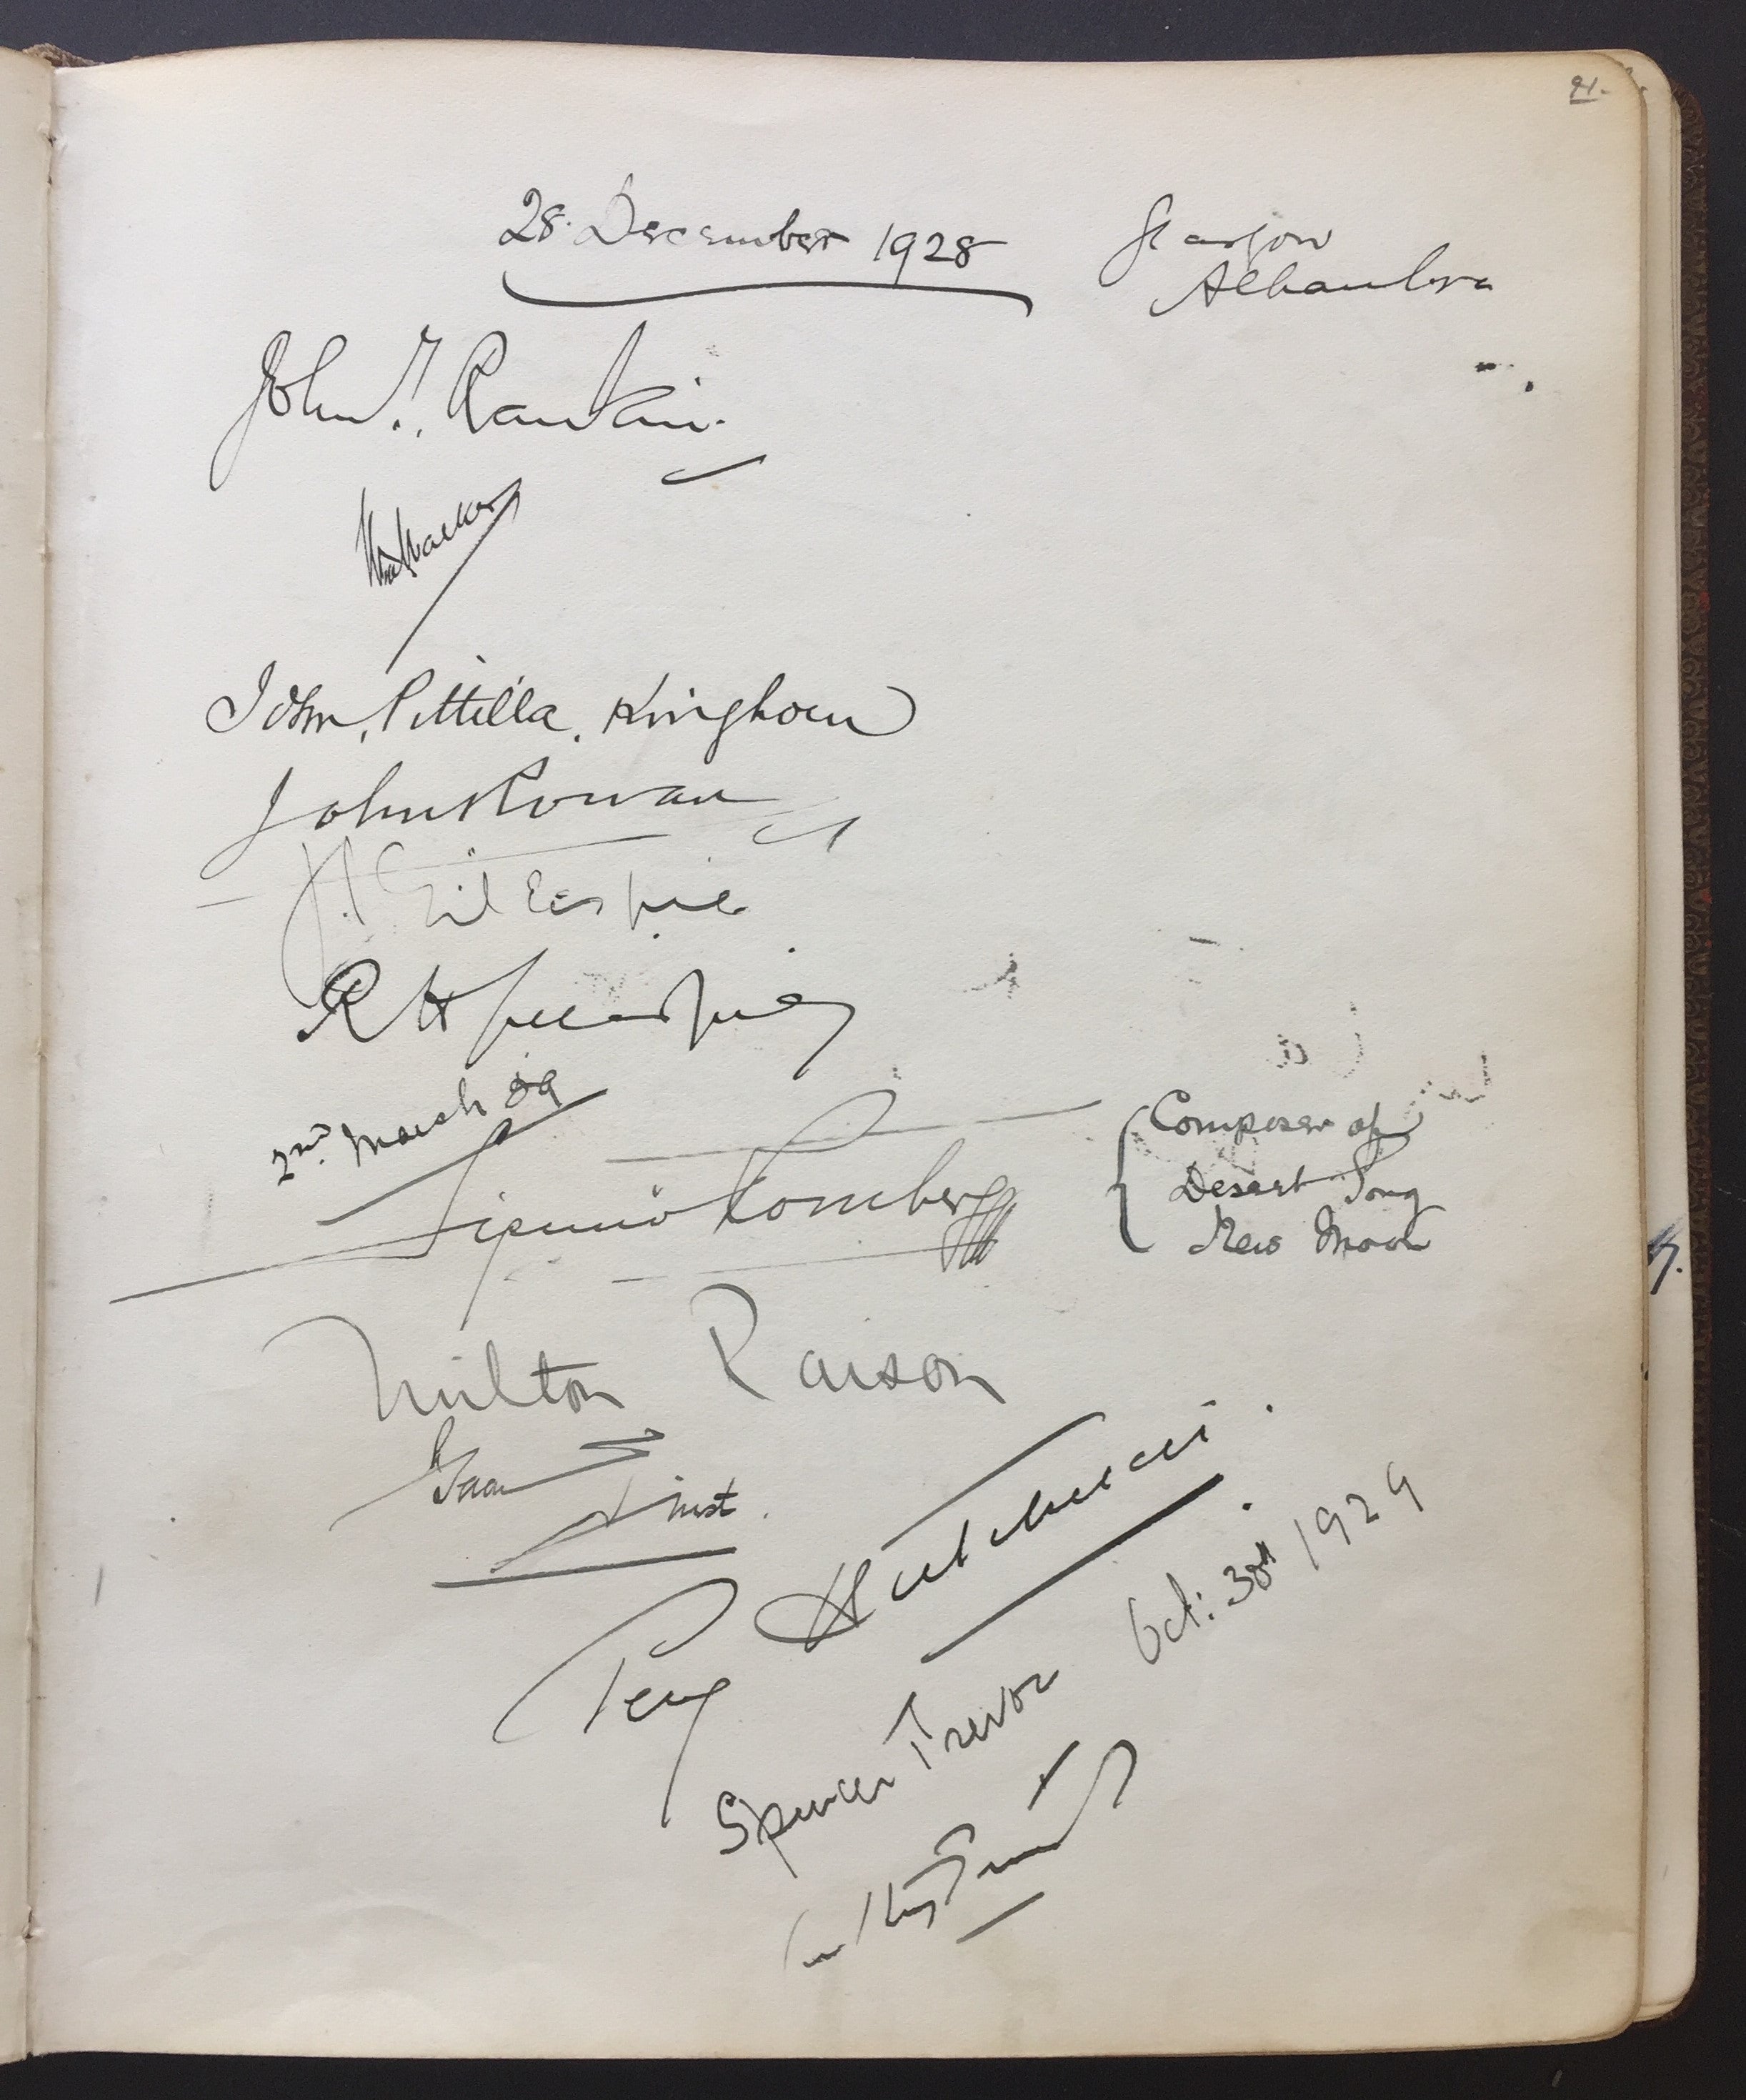 21.
28. December 1928
Glasgow
Alhambra
John T. Rankin.
John. Pittilla. Kinghorn
John Rowan
J. Gillespie
R H Gillespie
2nd March 29
Sigmund Romberg
{ Composer of
Desert Song
New Moon
Milton Raison
Percy Hutchison.
Spencer Trevor Oct: 30th 1929